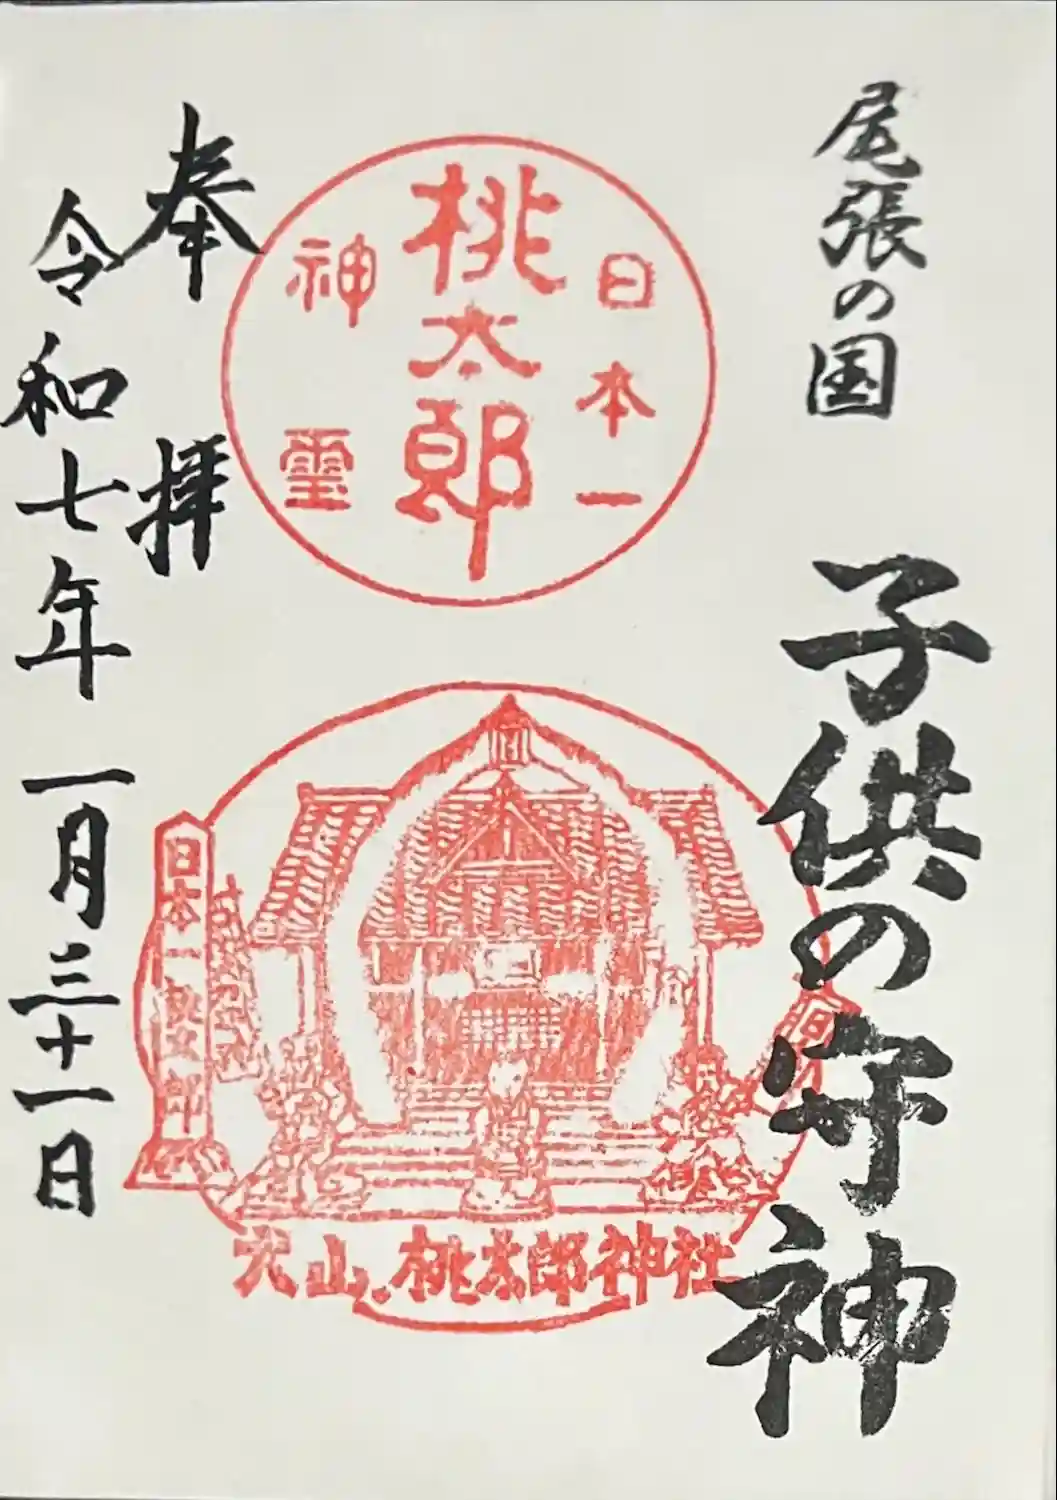 尾張の国
子供の守神
日本一
桃太郎
神霊
日本一桃太郎
犬山、桃太郎神社
奉拝
令和七年一月三十一日